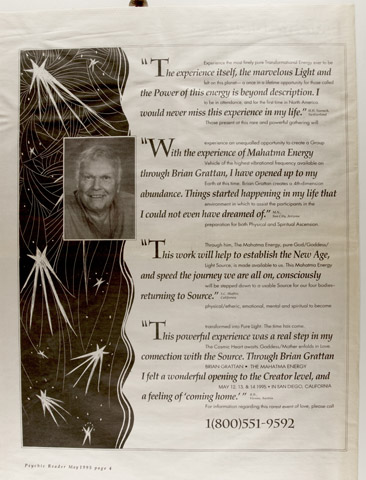 Experience the most finely pure Transformational Energy ever to be
"The experience itself, the marvelous Light and
felt on this planet – a once in a lifetime opportunity for those called
the Power of this energy is beyond description. I
to be in attendance; and for the first time in North America.
would never miss this experience in my life."
Those present at this rare and powerful gathering will
experience an unequalled opportunity to create a Group
"With the experience of Mahatma Energy
Vehicle of the highest vibrational frequency available on
through Brian Grattan, I have opened up to my
Earth at this time. Brian Grattan creates a 4th-dimension
abundance. Things started happening in my life that
environment in which to assist the participants in the
I could not even have dreamed of."
preparation for both Physical and Spiritual Ascension.
Through him, The Mahatma Energy, pure God/Goddess/
"This work will help to establish the New Age,
Light Source, is made available to us. This Mahatma Energy
and speed the journey we are all on, consciously
will be stepped down to a usable Source for our four bodies–
returning to Source."
physical/etheric, emotional, mental and spiritual to become
transformed into Pure Light. The time has come.
"This powerful experience was a real step in my
The Cosmic Heart awaits Goddess/Mother enfolds in Love
connection with the Source. Through Brian Grattan
BRIAN GRATTAN • THE MAHATMA ENERGY
I felt a wonderful opening to the Creator level, and
MAY 12, 13, & 14 1995 • IN SAN DIEGO, CALIFORNIA
a feeling of 'coming home.'"
For information regarding this rarest event of love, please call
1(800)551-9592
Psychic Reader May 1995 page 4